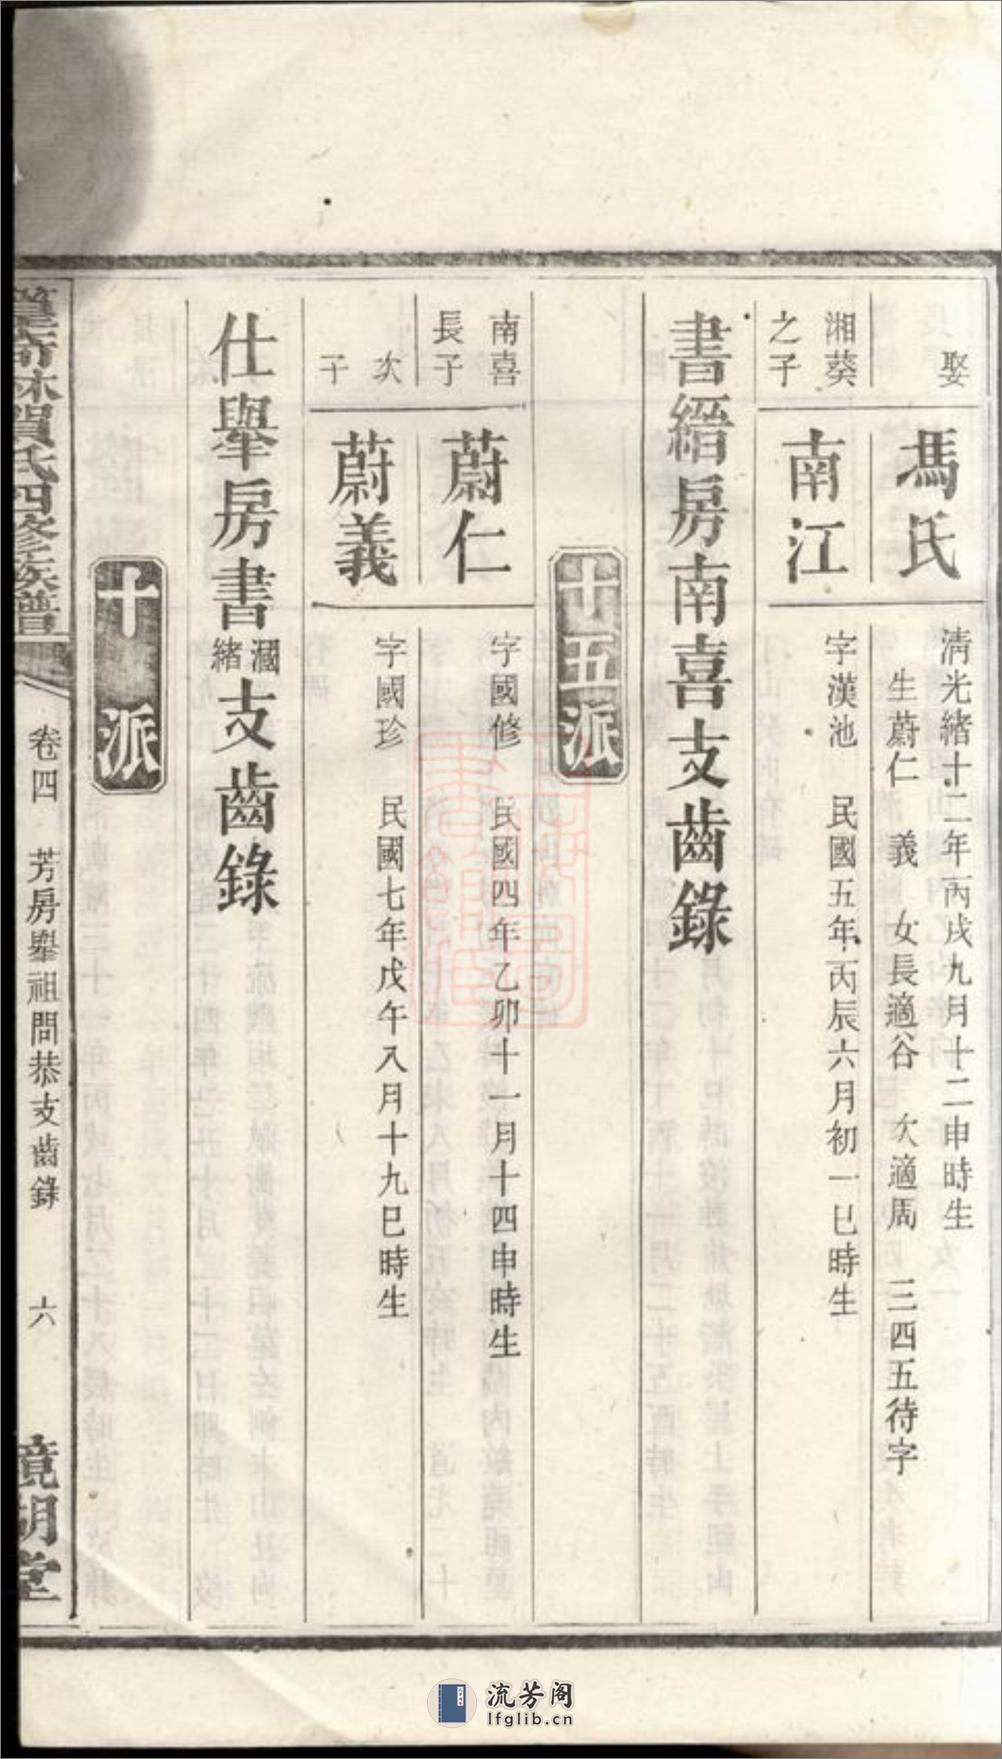 娶
馮氏
清光緒十二年丙戌九月十二申時生
生蔚仁　義　女長適谷　次適周　三四五待字
湘葵
之子
南江
字漢池　民國五年丙辰六月初一巳時生
書縉房南喜支齒錄
十五派
南喜
長子
蔚仁
字國修　民國四年乙卯十一月十四申時生
次
子
蔚義
字國珍　民國七年戊午八月十九巳時生
仕舉房書
緒
支齒錄
十
派
賀氏四修族譜
卷四　芳房舉祖問恭支齒錄　六
鏡湖堂
流芳阁
lfglib.cn